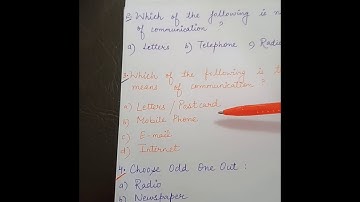 2. Which of the following is
of communication ?
a) Letters b) Telephone c)
3. Which of the following is
means of communication ?
a) Letters / Postcard
b) Mobile Phone
c) E-mail
d) Internet
4. Choose Odd One Out :
a) Radio
b) Newspaper